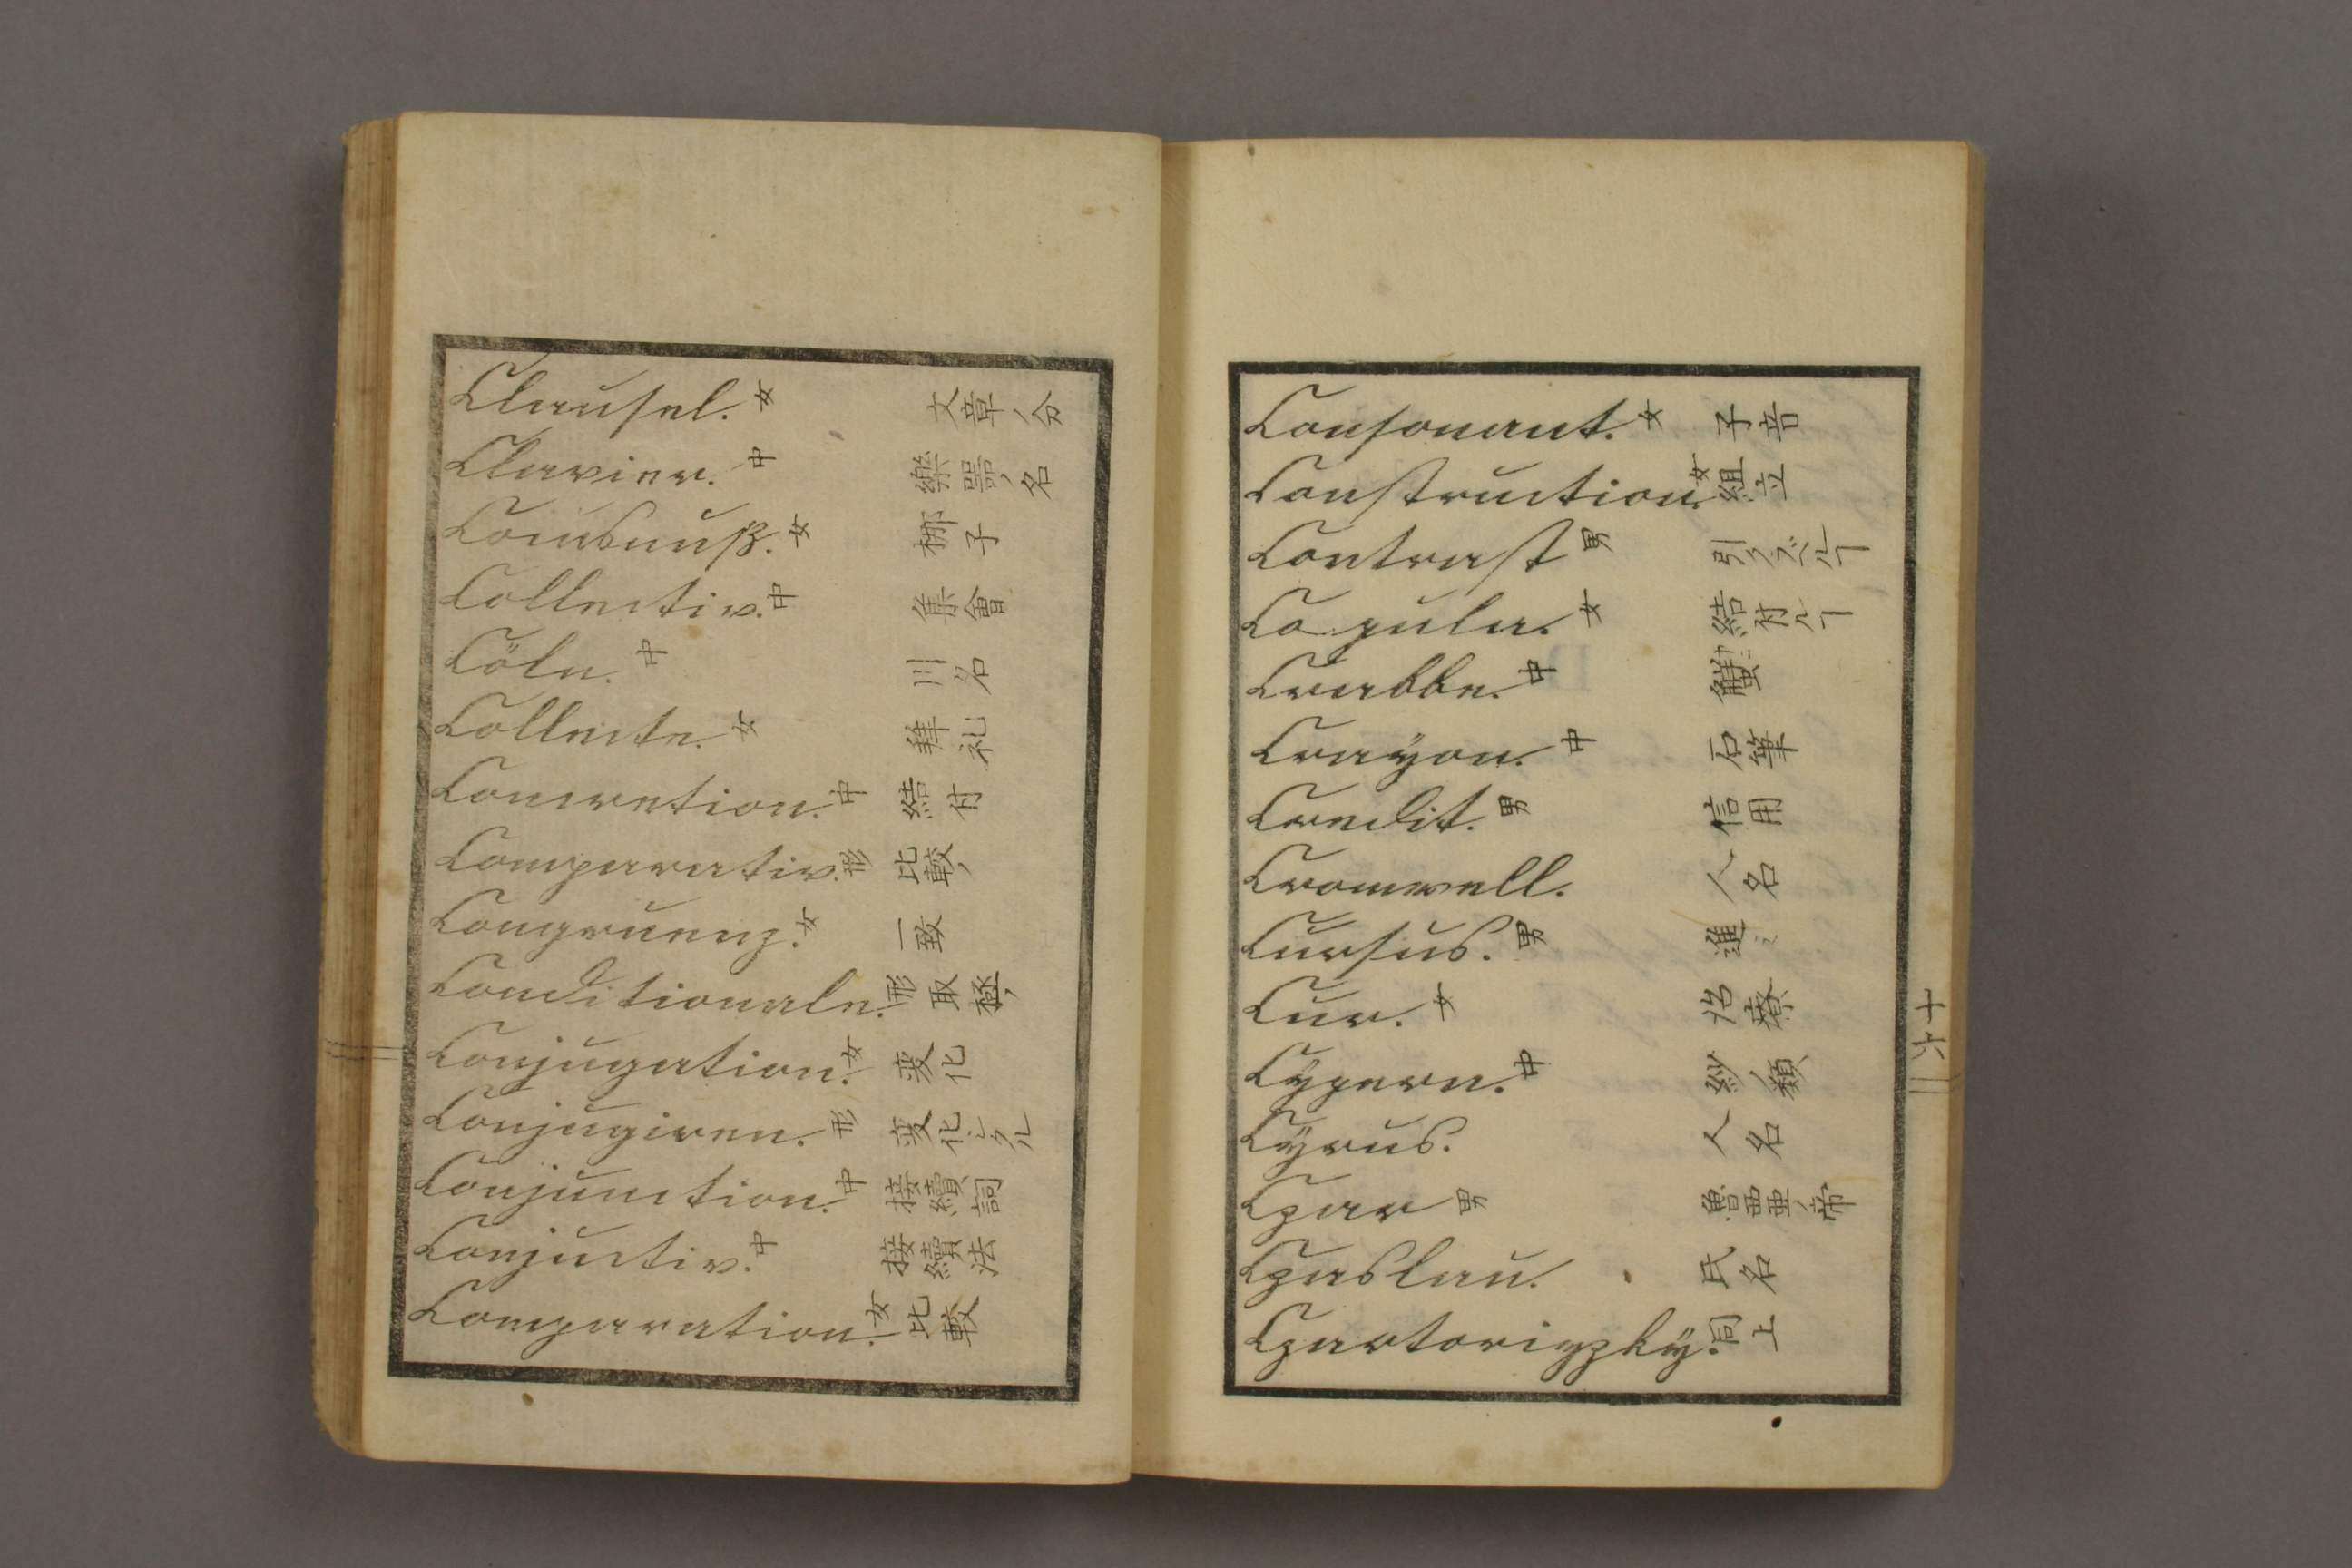 Clausel. 女 文章ノ分
Clavier. 中 樂噐ノ名
Cocusnuß. 女 梛子
Collectiv. 中 集會
Cöln. 中 川名
Collecte. 女 拜礼
Concretion. 中 結付
Comparativ. 形 比較ノ
Congruenz. 女 一致
Conditionale. 形 取極ノ
Conjugation. 女 変化
Conjugiren. 形 変化シタル
Conjunction. 中 接續詞
Conjuctiv. 中 接續法
Comparation. 女 比較
Consonant. 女 子音
Construction. 女 組立
Contrast 男 引クラベルヿ
Copula. 女 結付ルヿ
Crabbe. 中 蟹カニ
Crayon. 中 石筆
Credit. 男 信用
Cromwell. 人名
Cursus. 男 進ミ
Cur. 女 治療
Cypern. 中 紗ノ類
Cyrus. 人名
Czar 男 魯西亜ノ帝
Czaslau. 氏名
Czartorigzky. 同上
十六